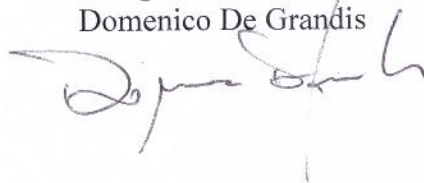 Domenico De Grandis